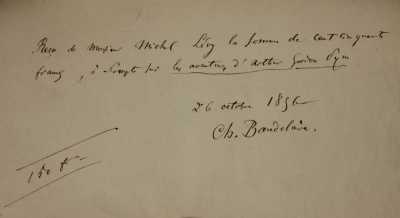 Reçu de Monsieur Michel Lévy la somme de cent cinquante
francs, à compte sur les aventures d'Arthur Gordon Pym
26 octobre 1856
Ch. Baudelaire.
150 f